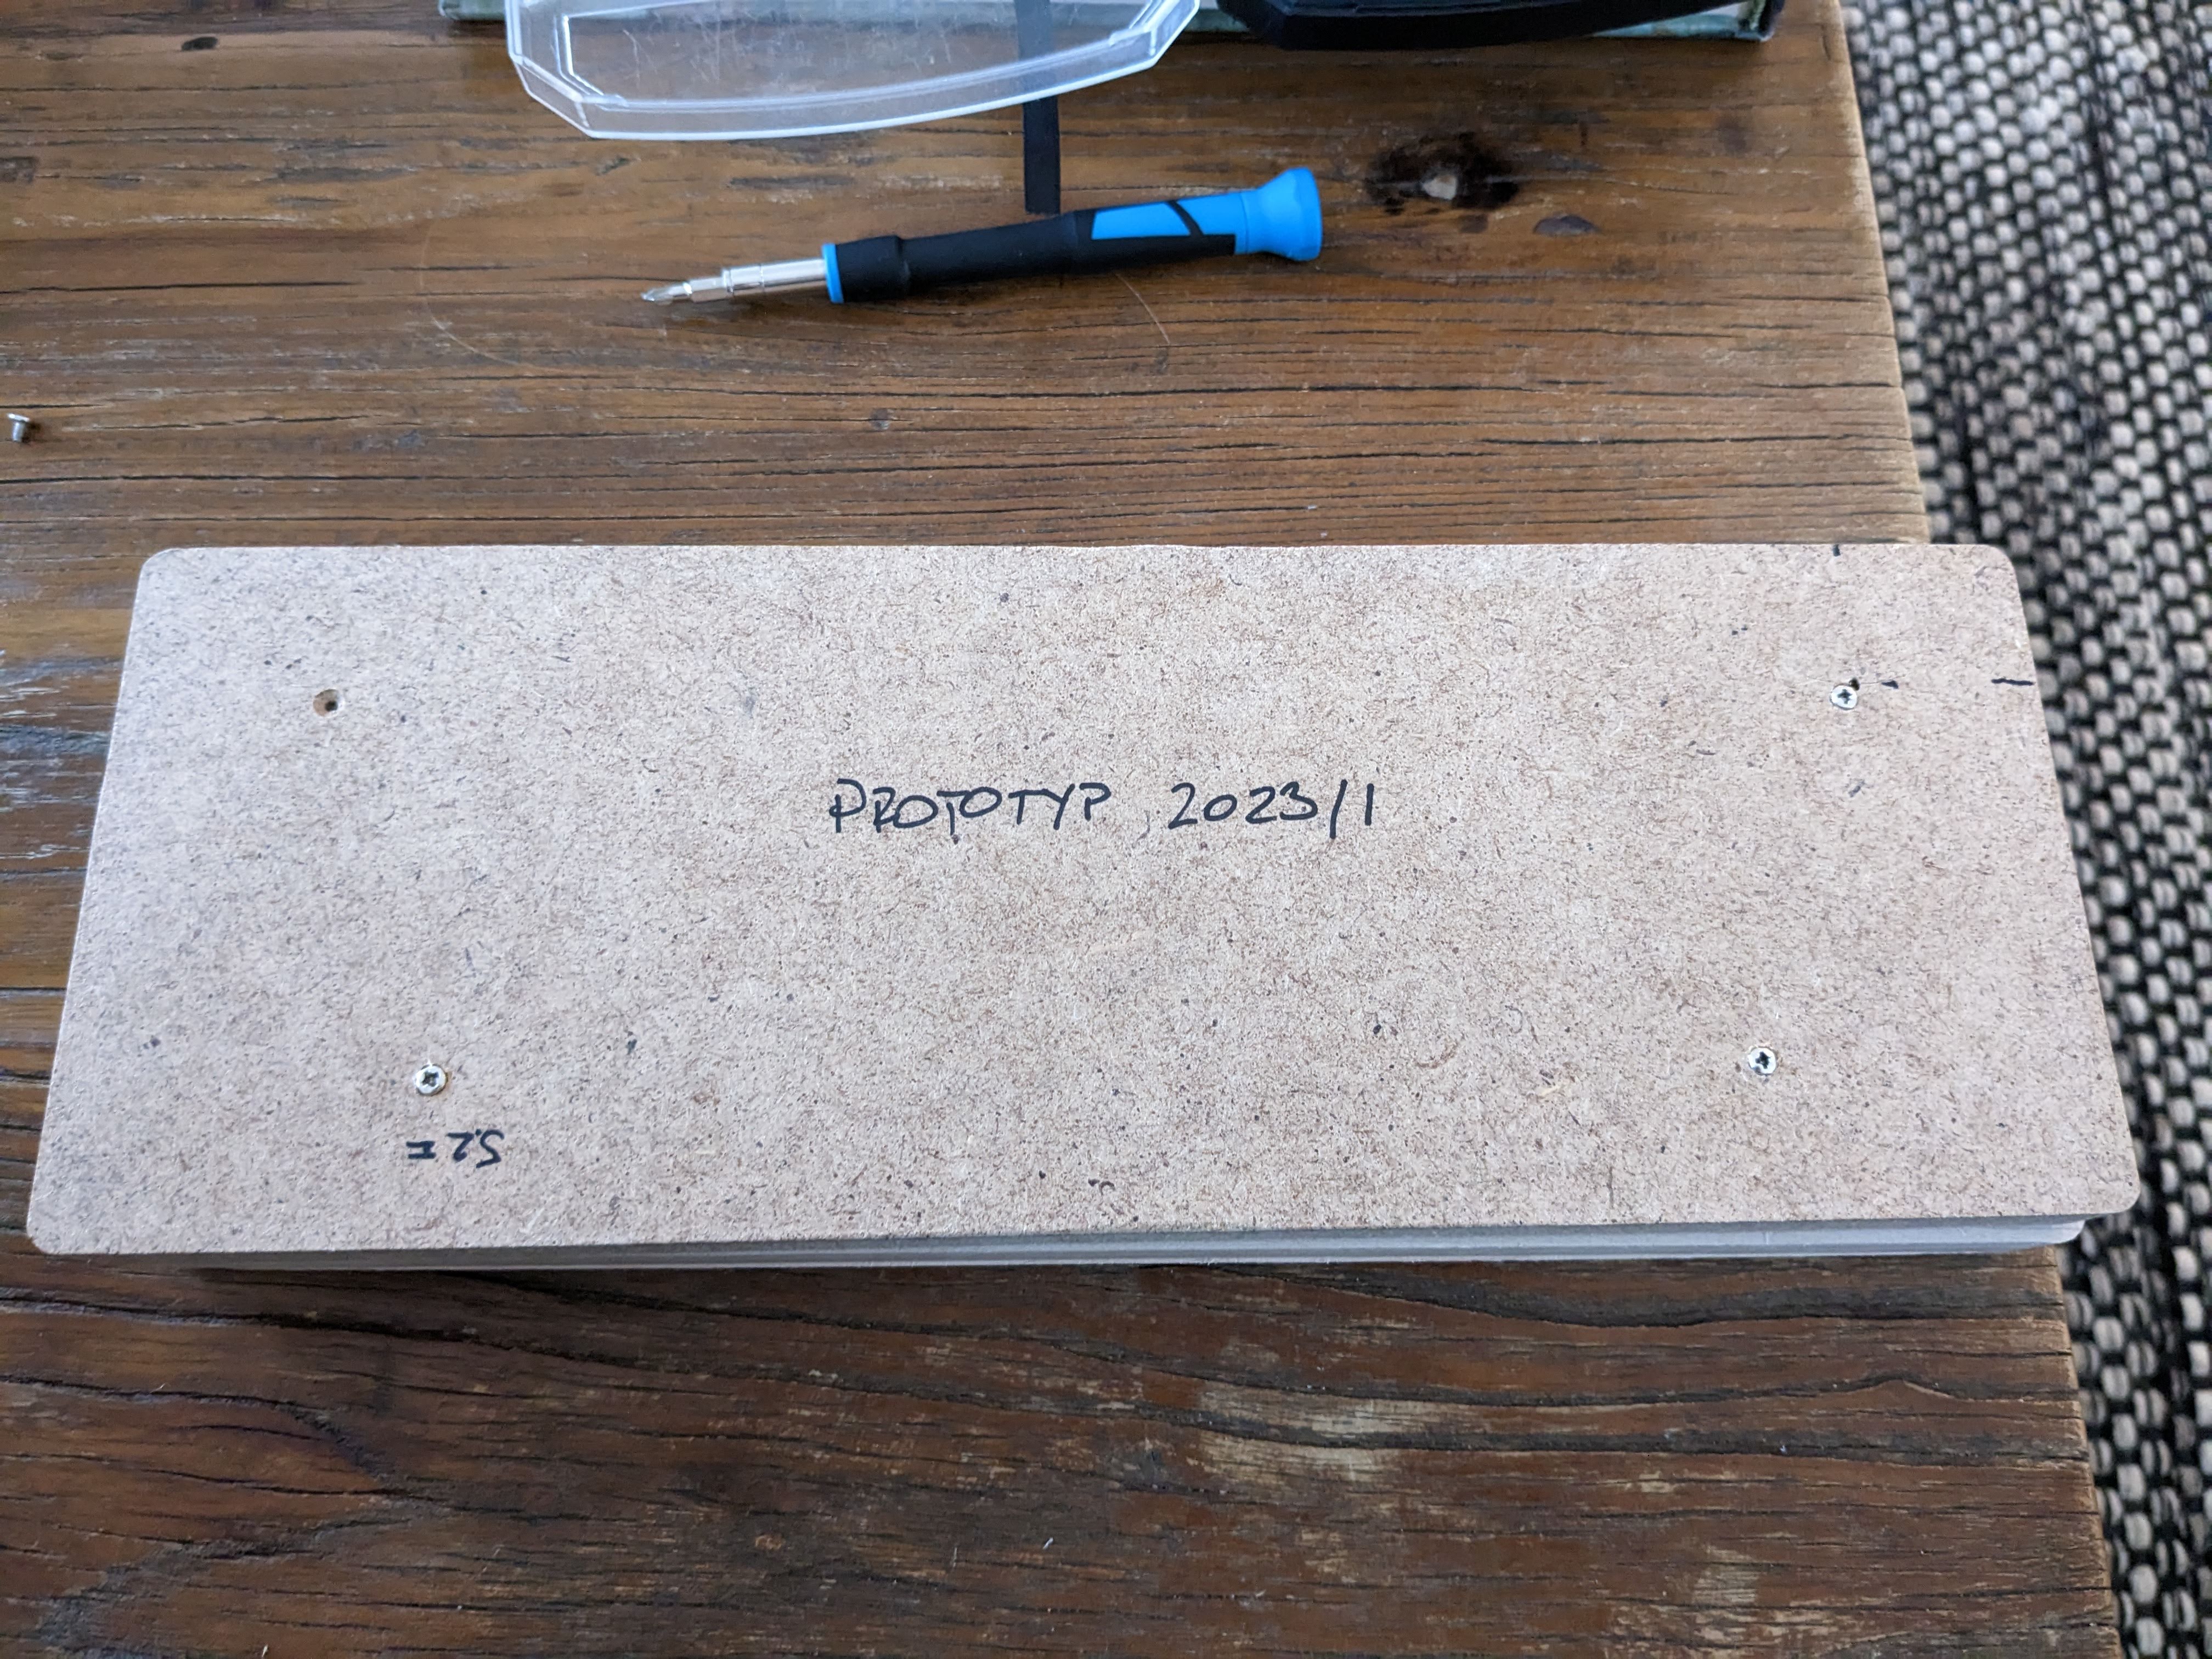 PROTOTYP 2023/1
S.2 II